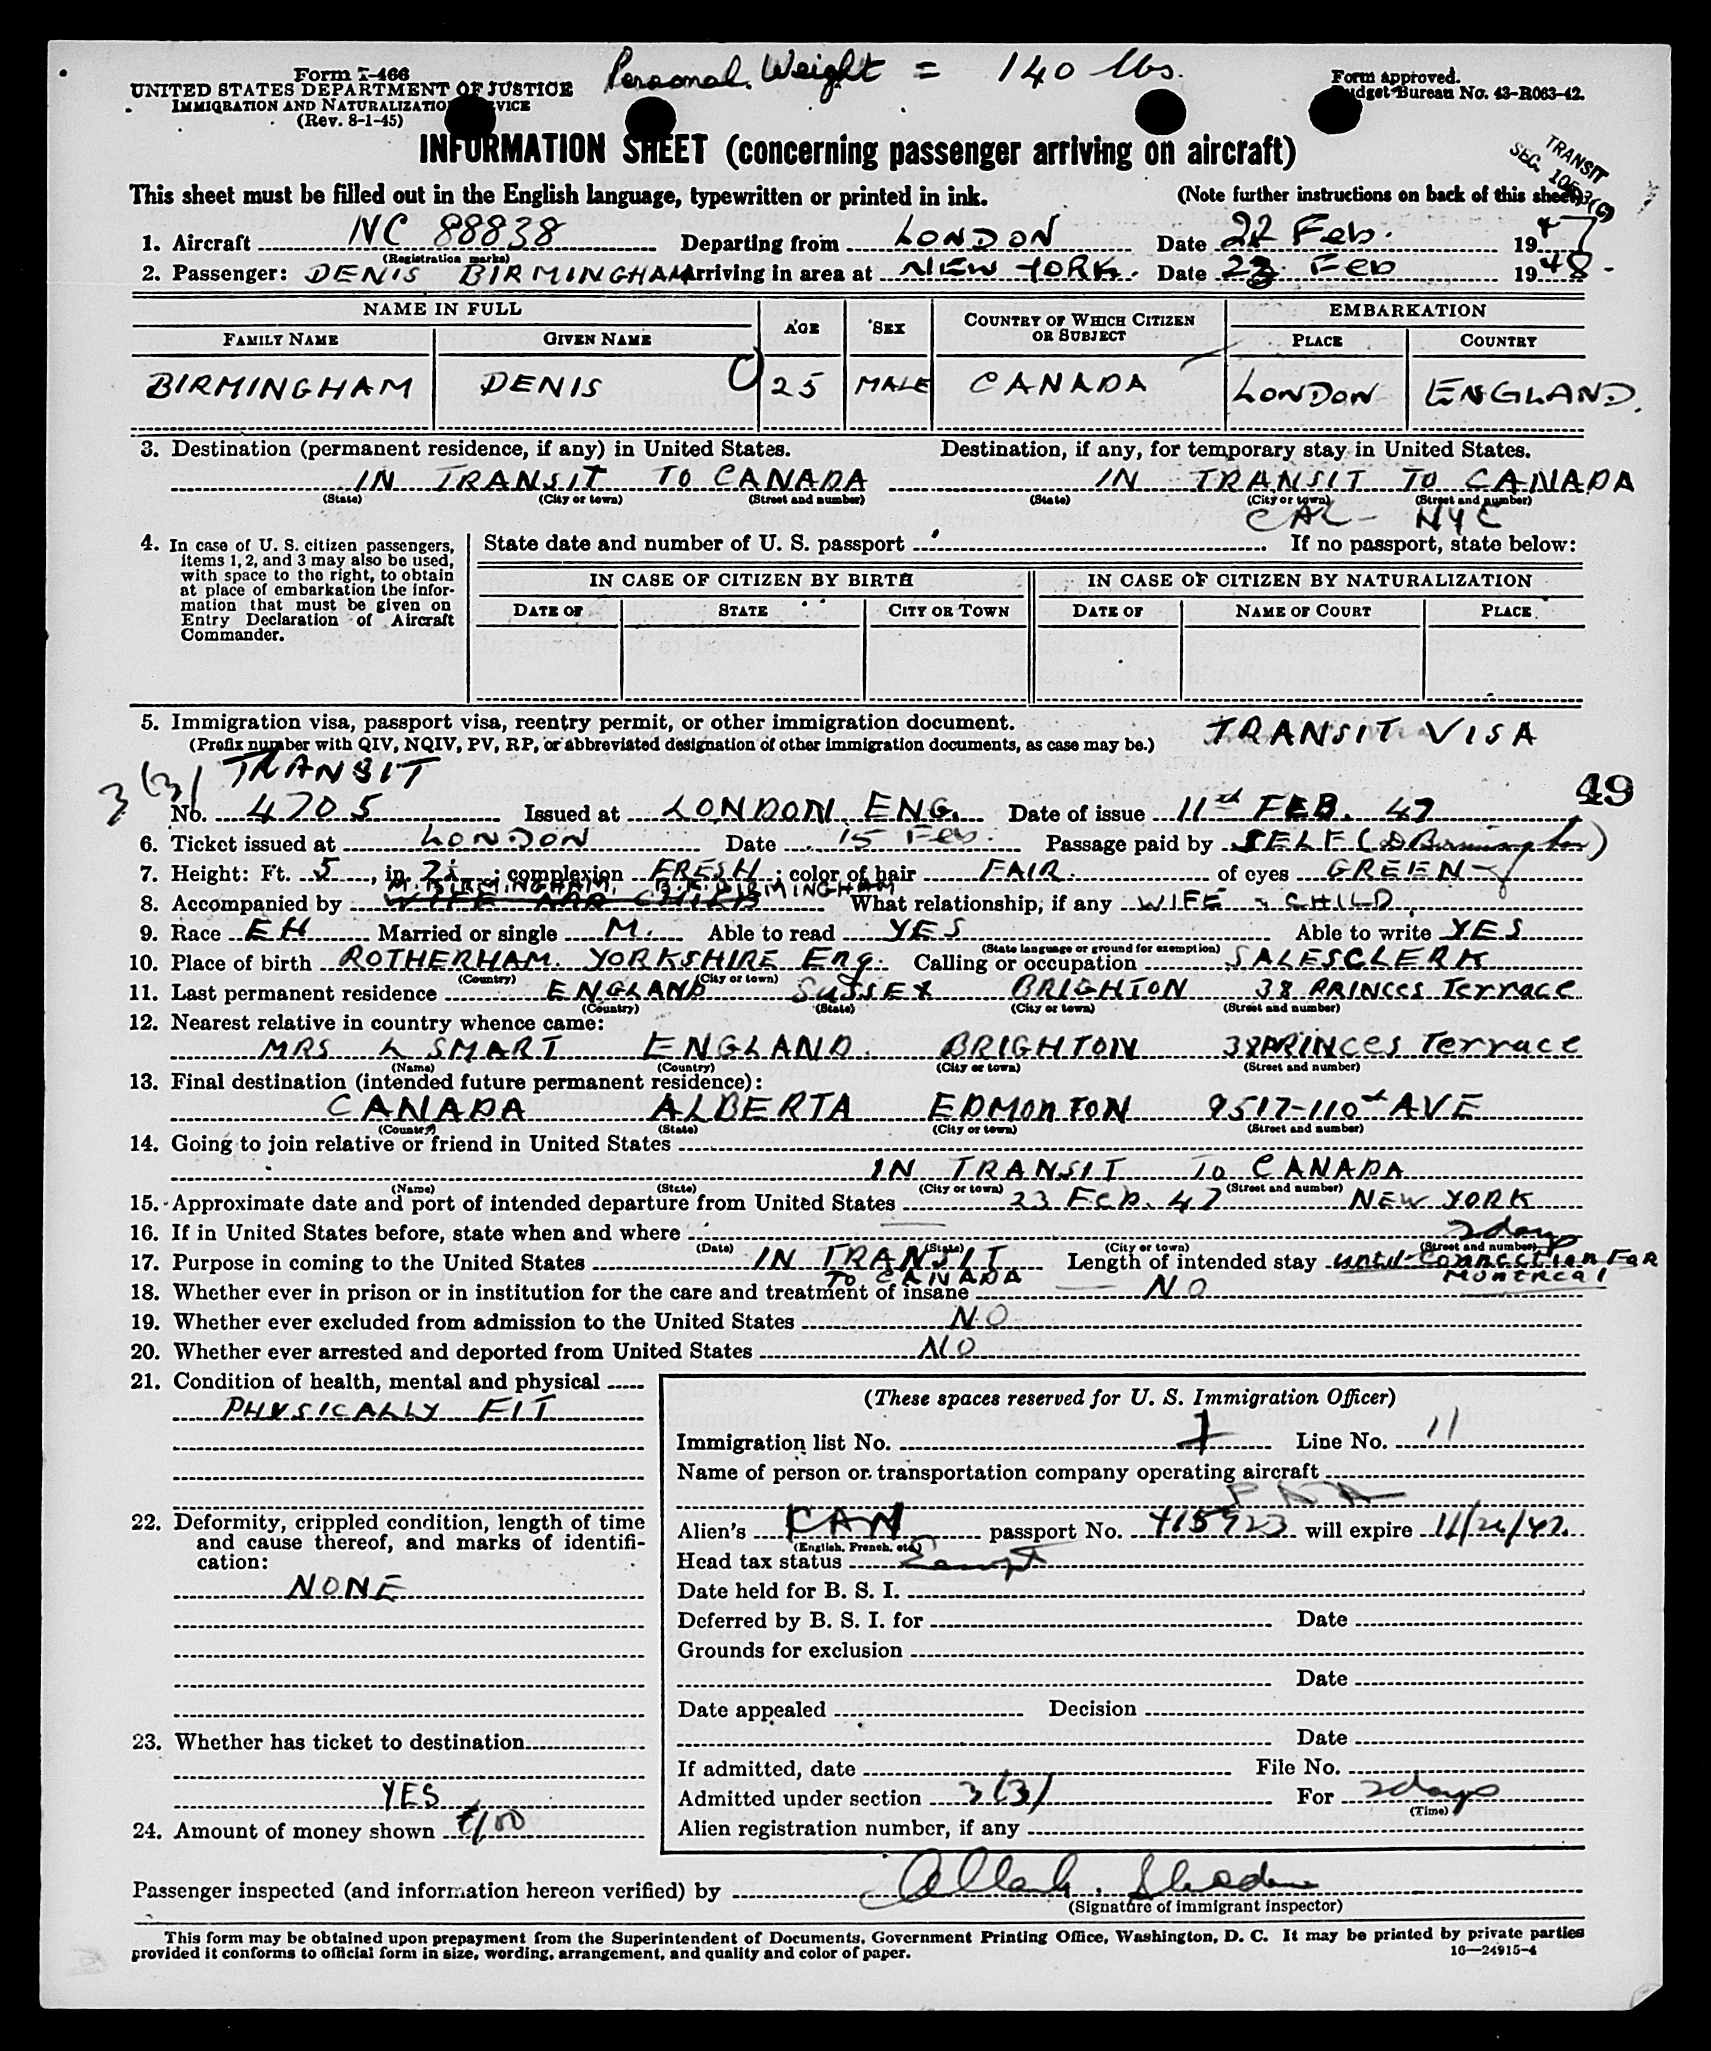 Personal Weight = 140 lbs.
Form I-466
UNITED STATES DEPARTMENT OF JUSTICE
IMMIGRATION AND NATURALIZATION SERVICE
(Rev. 8-1-45)
Form approved.
Budget Bureau No. 43-R063-42.
INFORMATION SHEET (concerning passenger arriving on aircraft)
TRANSIT
SEC.
This sheet must be filled out in the English language, typewritten or printed in ink.
(Note further instructions on back of this sheet)
1. Aircraft NC 88838 Departing from LONDON Date 22 Feb. 1947
(Registration marks)
2. Passenger: DENIS BIRMINGHAM Arriving in area at NEW YORK. Date 23 Feb 1948.
NAME IN FULL AGE SEX COUNTRY OF WHICH CITIZEN OR SUBJECT EMBARKATION
FAMILY NAME GIVEN NAME PLACE COUNTRY
BIRMINGHAM DENIS 25 MALE CANADA LONDON ENGLAND.
3. Destination (permanent residence, if any) in United States. Destination, if any, for temporary stay in United States.
IN TRANSIT TO CANADA IN TRANSIT TO CANADA
(State) (City or town) (Street and number) (State) (City or town) (Street and number)
CAL - NYC
4. In case of U. S. citizen passengers, items 1, 2, and 3 may also be used, with space to the right, to obtain at place of embarkation the information that must be given on Entry Declaration of Aircraft Commander.
State date and number of U. S. passport If no passport, state below:
IN CASE OF CITIZEN BY BIRTH IN CASE OF CITIZEN BY NATURALIZATION
DATE OF STATE CITY OR TOWN DATE OF NAME OF COURT PLACE
5. Immigration visa, passport visa, reentry permit, or other immigration document.
(Prefix number with QIV, NQIV, PV, RP, or abbreviated designation of other immigration documents, as case may be.)
TRANSIT VISA
3(3) TRANSIT
49
No. 4705 Issued at LONDON ENG. Date of issue 11th FEB. 47
6. Ticket issued at LONDON Date 15 Feb. Passage paid by SELF (D Birmingham)
7. Height: Ft. 5, in. 7½; complexion FRESH; color of hair FAIR. of eyes GREEN
M. BIRMINGHAM. B.F. BIRMINGHAM
8. Accompanied by WIFE AND CHILD What relationship, if any WIFE & CHILD
9. Race EH Married or single M. Able to read YES Able to write YES
(State language or ground for exemption)
10. Place of birth ROTHERHAM. YORKSHIRE Eng. Calling or occupation SALESCLERK
(Country) (City or town)
11. Last permanent residence ENGLAND SUSSEX BRIGHTON 38 PRINCES Terrace
(Country) (State) (City or town) (Street and number)
12. Nearest relative in country whence came:
MRS L SMART ENGLAND. BRIGHTON 38 PRINCES Terrace
(Name) (Country) (City or town) (Street and number)
13. Final destination (intended future permanent residence):
CANADA ALBERTA EDMONTON 9517-110th AVE
(Country) (State) (City or town) (Street and number)
14. Going to join relative or friend in United States
IN TRANSIT To CANADA
(Name) (State) (City or town) (Street and number)
15. Approximate date and port of intended departure from United States 23 Feb. 47 NEW YORK
16. If in United States before, state when and where
(Date) (State) (City or town) (Street and number)
2 days
17. Purpose in coming to the United States IN TRANSIT TO CANADA Length of intended stay until connection For Montreal
18. Whether ever in prison or in institution for the care and treatment of insane NO
19. Whether ever excluded from admission to the United States NO
20. Whether ever arrested and deported from United States NO
21. Condition of health, mental and physical
PHYSICALLY FIT
22. Deformity, crippled condition, length of time and cause thereof, and marks of identification:
NONE
23. Whether has ticket to destination
YES
24. Amount of money shown £100
(These spaces reserved for U. S. Immigration Officer)
Immigration list No. 7 Line No. 11
Name of person or transportation company operating aircraft
PAA
Alien's CAN passport No. 415923 will expire
(English, French, etc.)
Head tax status Exempt
Date held for B. S. I.
Deferred by B. S. I. for Date
Grounds for exclusion
Date
Date appealed Decision
Date
If admitted, date File No.
Admitted under section 3(3) For 2 days
(Time)
Alien registration number, if any
Passenger inspected (and information hereon verified) by
(Signature of immigrant inspector)
This form may be obtained upon prepayment from the Superintendent of Documents, Government Printing Office, Washington, D. C. It may be printed by private parties
provided it conforms to official form in size, wording, arrangement, and quality and color of paper.
16—24915-4